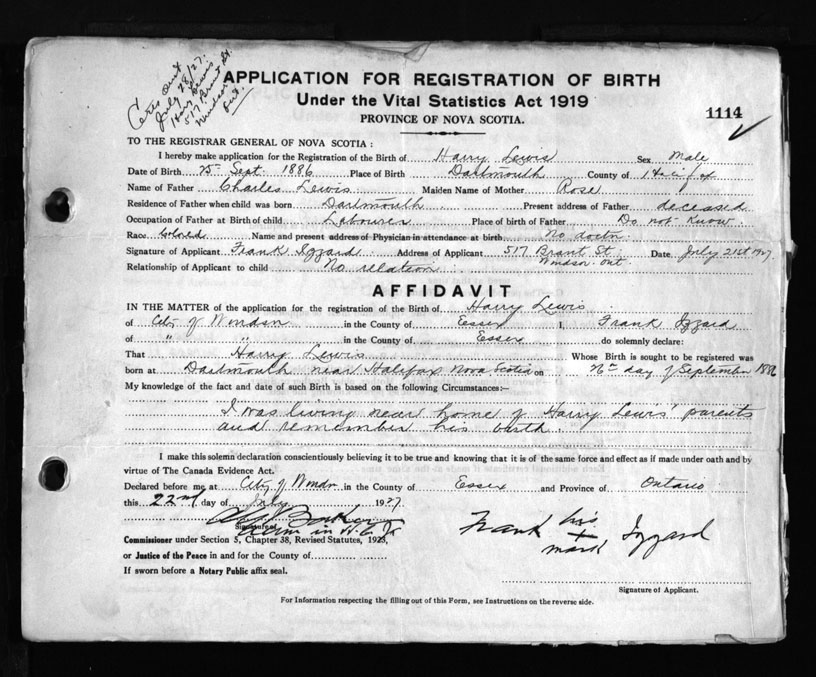 Cert. Out
July 28/27.
Harry Lewis
517 Brant St.
Windsor
Ont.
APPLICATION FOR REGISTRATION OF BIRTH
Under the Vital Statistics Act 1919
PROVINCE OF NOVA SCOTIA.
1114
TO THE REGISTRAR GENERAL OF NOVA SCOTIA :
I hereby make application for the Registration of the Birth of Harry Lewis Sex Male
Date of Birth 25th Sept. 1886 Place of Birth Dartmouth County of Halifax
Name of Father Charles Lewis Maiden Name of Mother Rose
Residence of Father when child was born Dartmouth Present address of Father deceased
Occupation of Father at Birth of child Labourer Place of birth of Father Do not Know
Race Colored Name and present address of Physician in attendance at birth No doctor
Signature of Applicant Frank Izzard Address of Applicant 517 Brant St. Date July 21st 1927
Windsor Ont
Relationship of Applicant to child No relation
AFFIDAVIT
IN THE MATTER of the application for the registration of the Birth of Harry Lewis
of City of Windsor in the County of Essex I, Frank Izzard
of " " in the County of Essex do solemnly declare:
That Harry Lewis Whose Birth is sought to be registered was
born at Dartmouth near Halifax Nova Scotia on day of September 1886
My knowledge of the fact and date of such Birth is based on the following Circumstances:—
I was living near home of Harry Lewis' parents
and remember his birth.
I make this solemn declaration conscientiously believing it to be true and knowing that it is of the same force and effect as if made under oath and by
virtue of The Canada Evidence Act.
Declared before me at City of Windsor in the County of Essex and Province of Ontario
this 22nd day of July 1927
Signature of
Commissioner under Section 5, Chapter 38, Revised Statutes, 1923,
or Justice of the Peace in and for the County of
If sworn before a Notary Public affix seal.
Frank his X mark Izzard
Signature of Applicant.
For Information respecting the filling out of this Form, see Instructions on the reverse side.